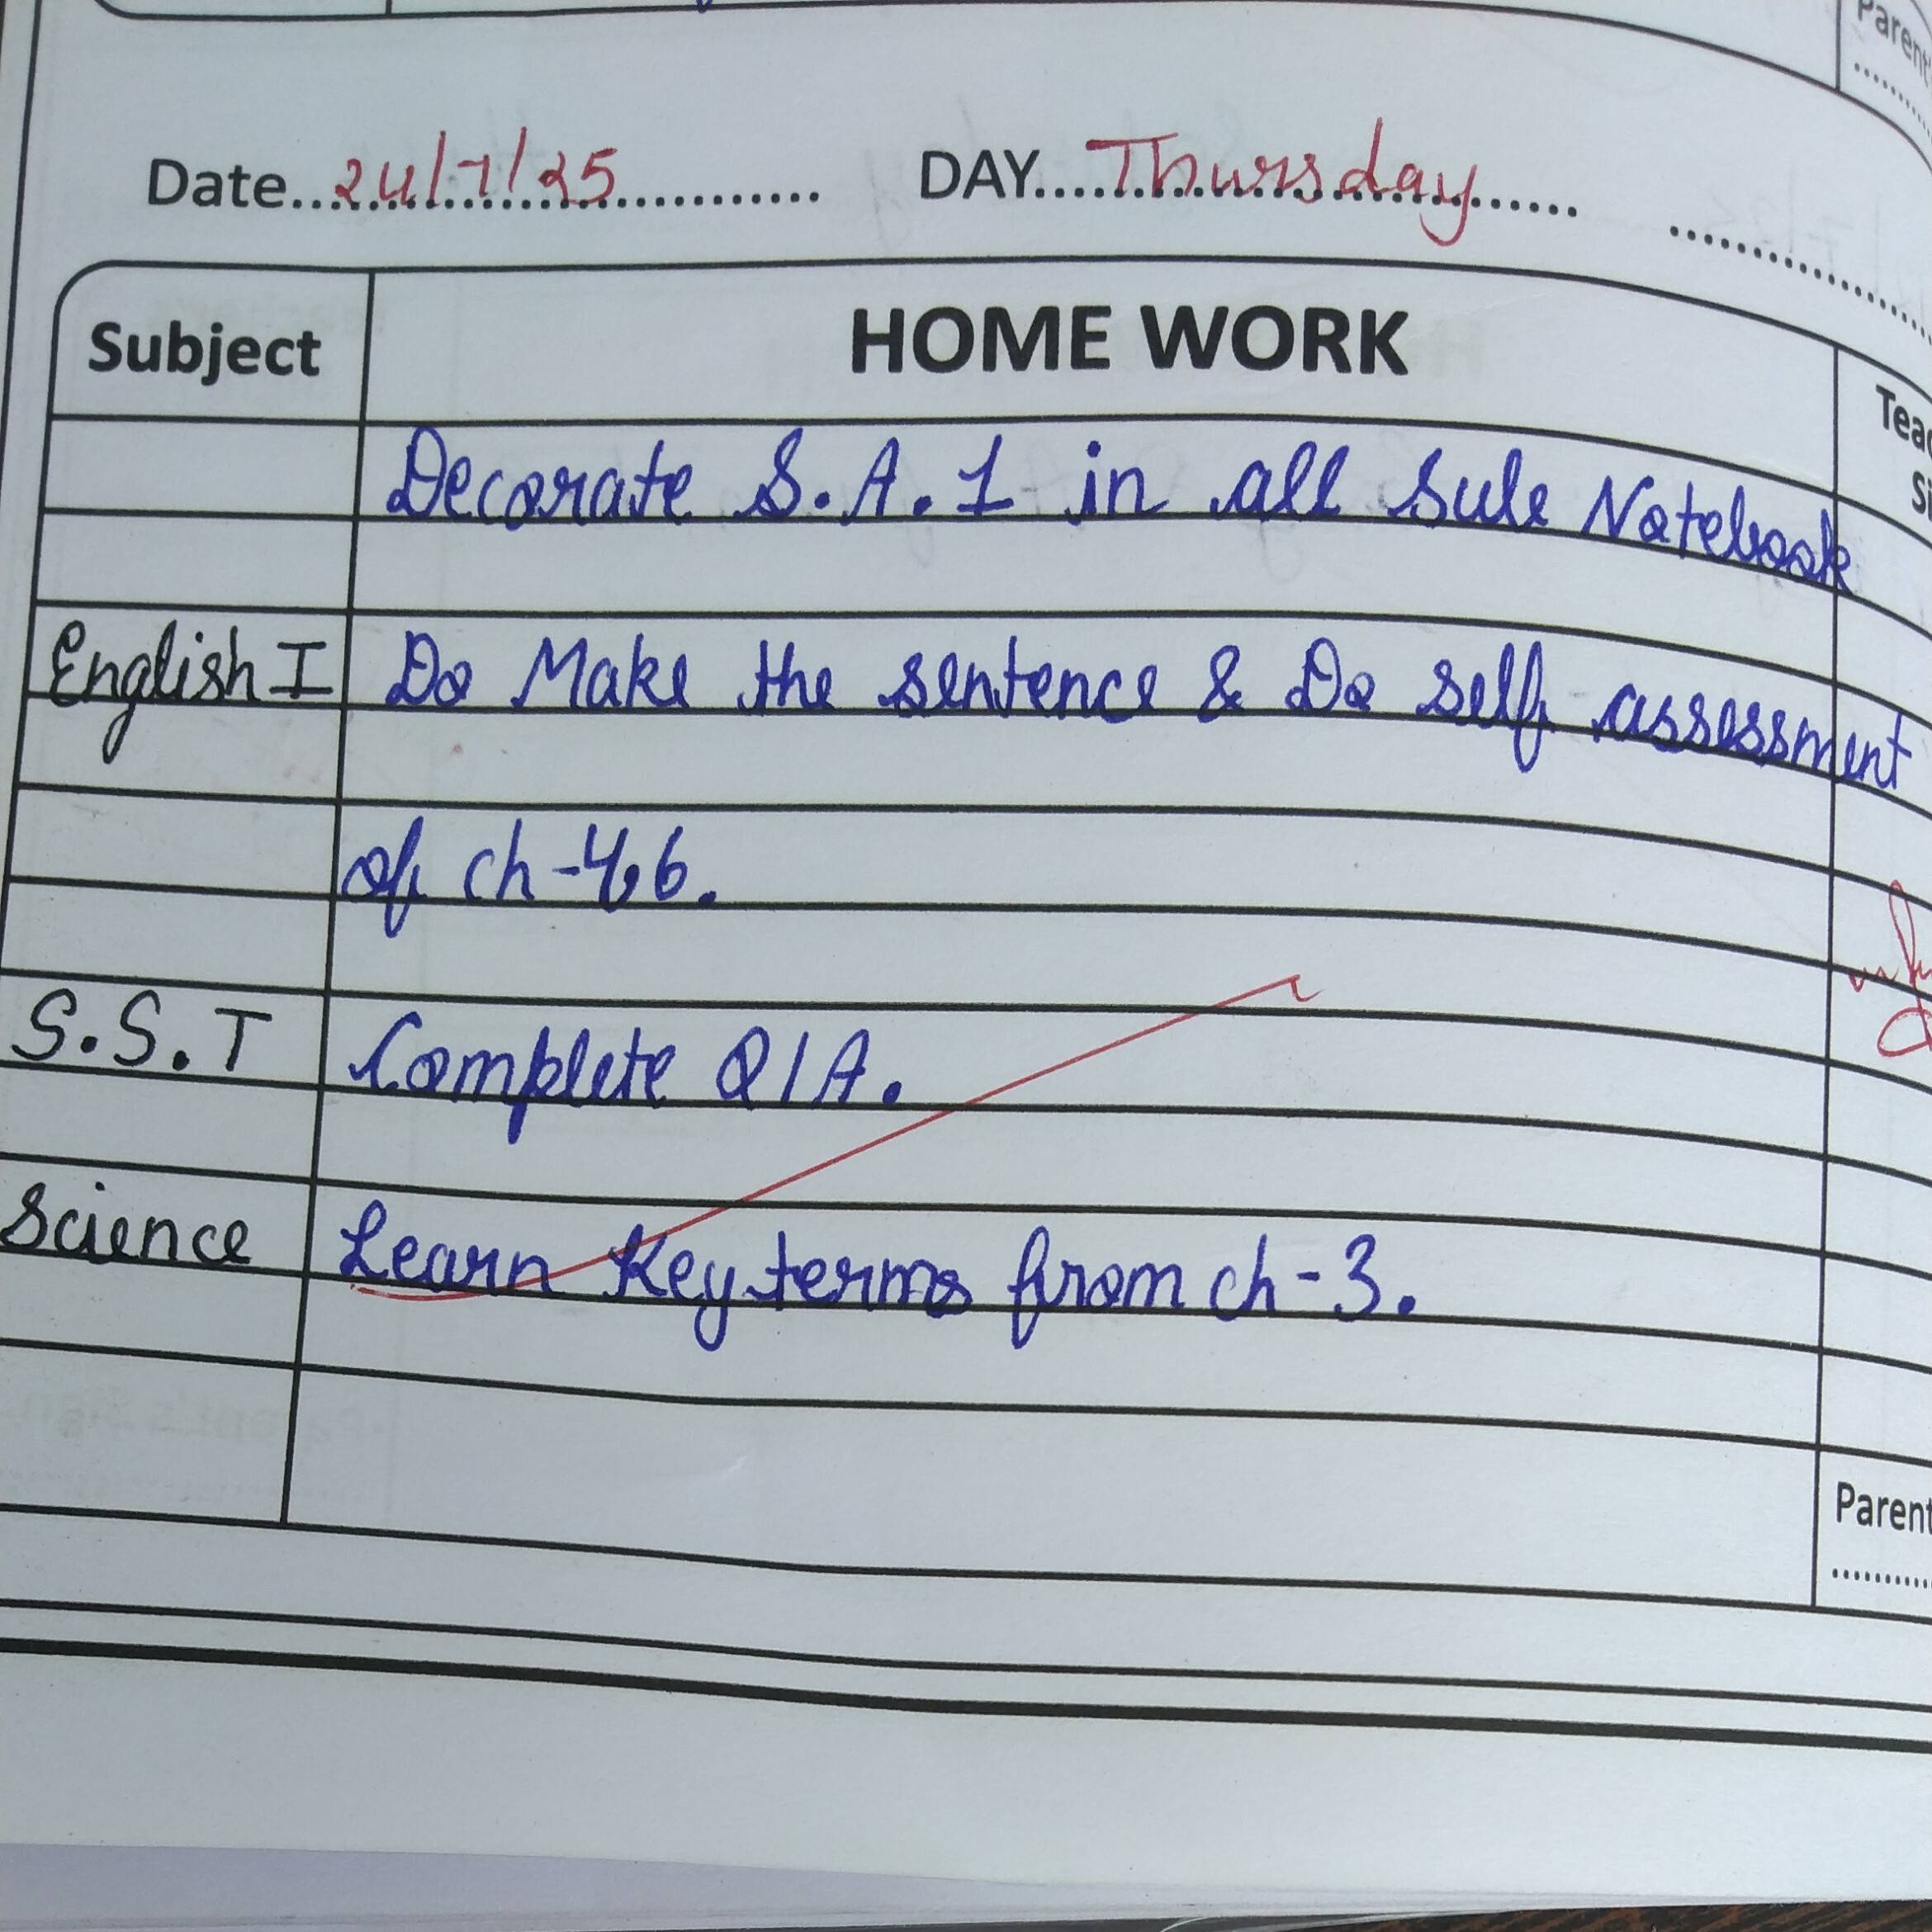 Parent
Date 24/7/25 DAY Thursday
Subject HOME WORK
Decorate S.A.1 in all Sule Notebook
English I Do Make the sentence & Do self assessment
of ch-4,6.
S.S.T Complete Q/A.
Science Learn Key terms from ch-3.
Parent